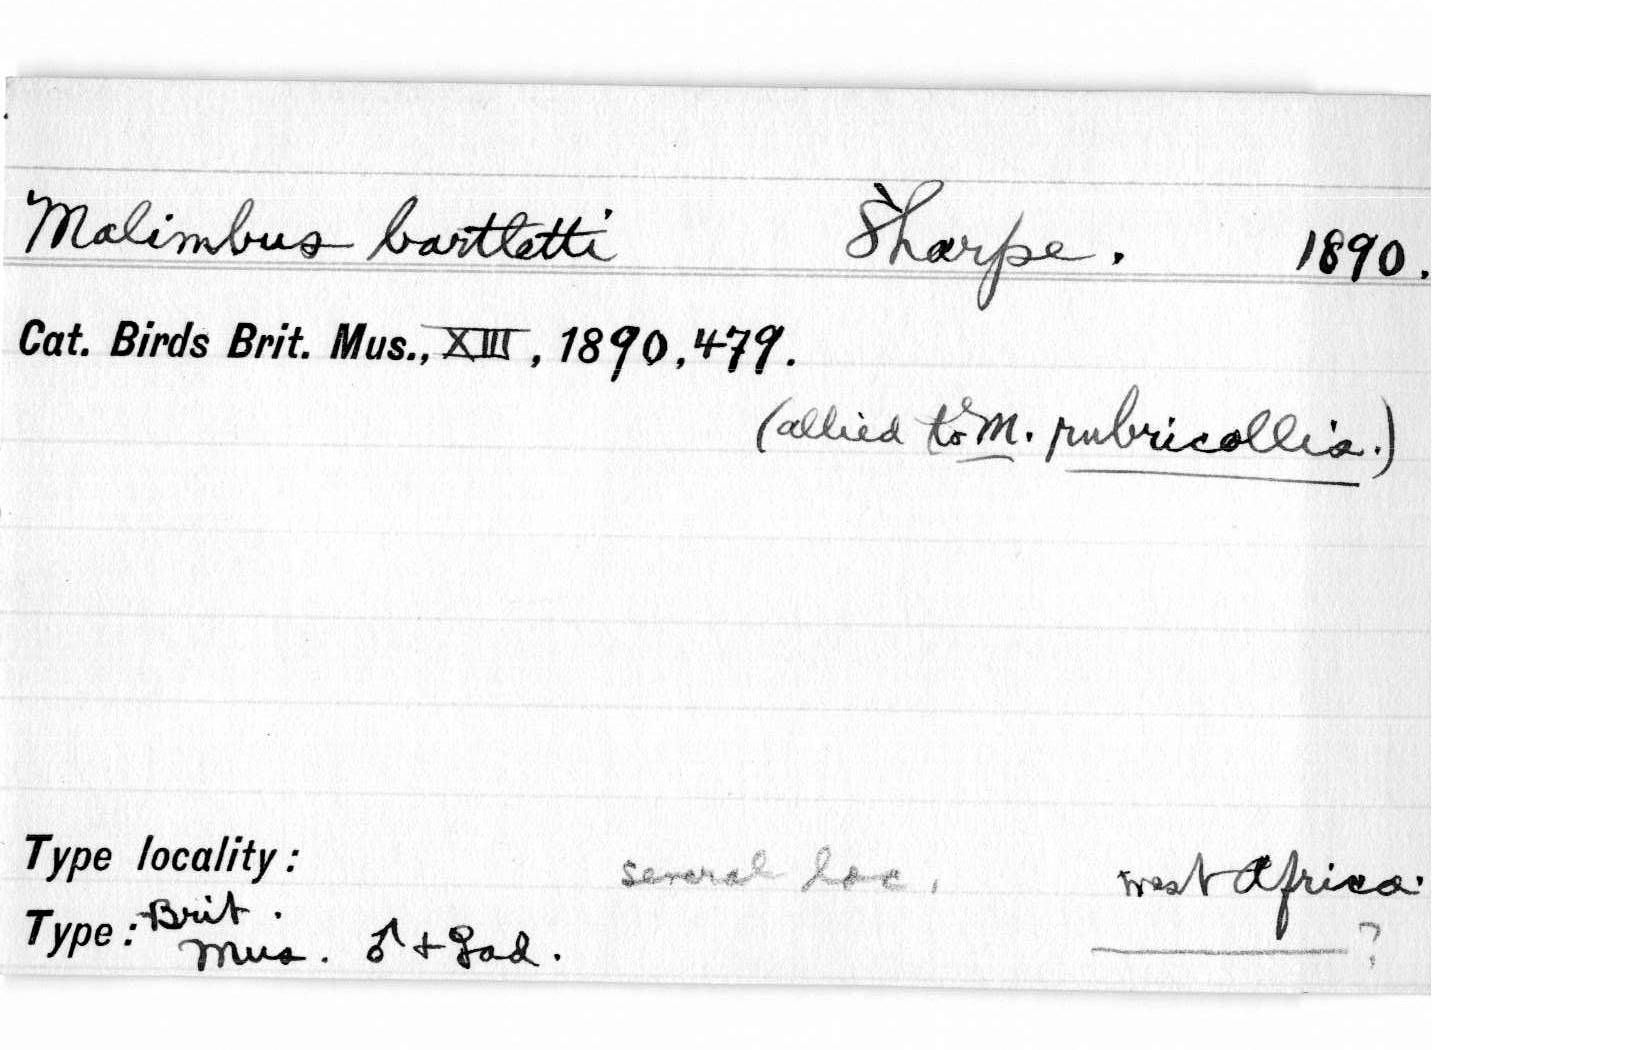 Malimbus bartletti Sharpe. 1890.
Cat. Birds Brit. Mus., XIII, 1890, 479.
(allied to M. rubricollis.)
Type locality: several loc. West Africa.
Type: Brit. Mus. ♂ + ♀ ad. ?